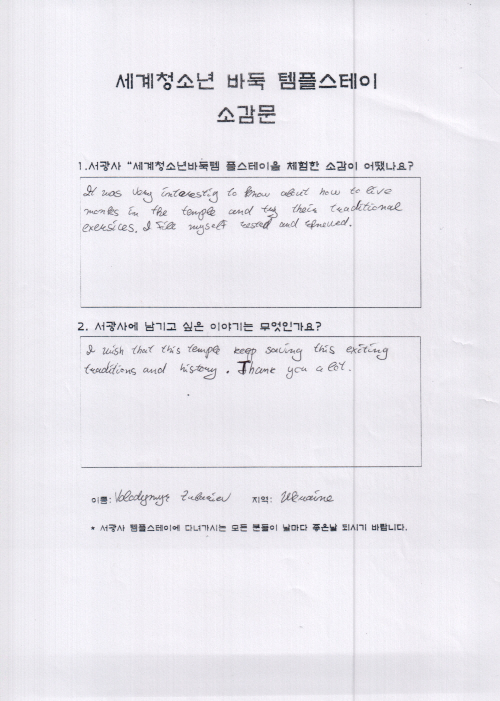 세계청소년 바둑 템플스테이
소감문
1.서광사 "세계청소년바둑템 플스테이을 체험한 소감이 어땠나요?
It was very interestig to know about how to live
monks in the temple and try their traditional
exersices. I fill myself rested and renewed.
2. 서광사에 남기고 싶은 이야기는 무엇인가요?
I wish that this temple keep saving this exiting
traditions and history. Thank you a lot.
이름: Volodymyr 지역: Ukraine
* 서광사 템플스테이에 다녀가시는 모든 분들이 날마다 좋은날 되시기 바랍니다.